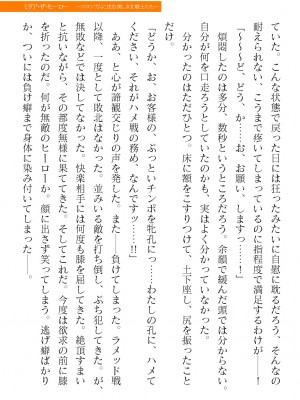 ていた。こんな状態で戻った日には狂ったみたいに自慰に耽るだろう、そんなの
耐えられない、こうまで疼いてしまっているのに指程度で満足するわけが――！
「～～～ど、どう、か……お、お願い、しますっ……！」
　煩悶したのは多分、数秒というところだろう。余韻で緩んだ頭では分からない。
自分が何を口走ろうとしていたのかも、実はよく分かっていなかった。
　分かったのはただひとつ。床に額をこすりつけて、土下座し、尻を振ったこと
だけ。
「どうか、お、お客様の、ぶっといチンポを牝孔に……わたしの孔に、ハメて
くださいっ、それがハメ戦の務め、なんですッ……!!」
　ああ、と心が諦観交じりの声を発した。また――負けてしまった。ラメッド戦
以降、一度として敗北はなかった。並みいる敵を打ち倒し、ぶち犯してきた。が、
無敗などでは決してなかった。快楽相手には何度も膝を屈してきた。絶頂すまい
と抗いながら、その都度無様に果ててきた。そしてこれだ。今度は欲求の前に膝
を折ったのだ。何が無敵のヒーローか。顔に出さず笑ってしまう。逃げ癖ばかり
か、ついには負け癖まで自身に染み付いてしまった――。